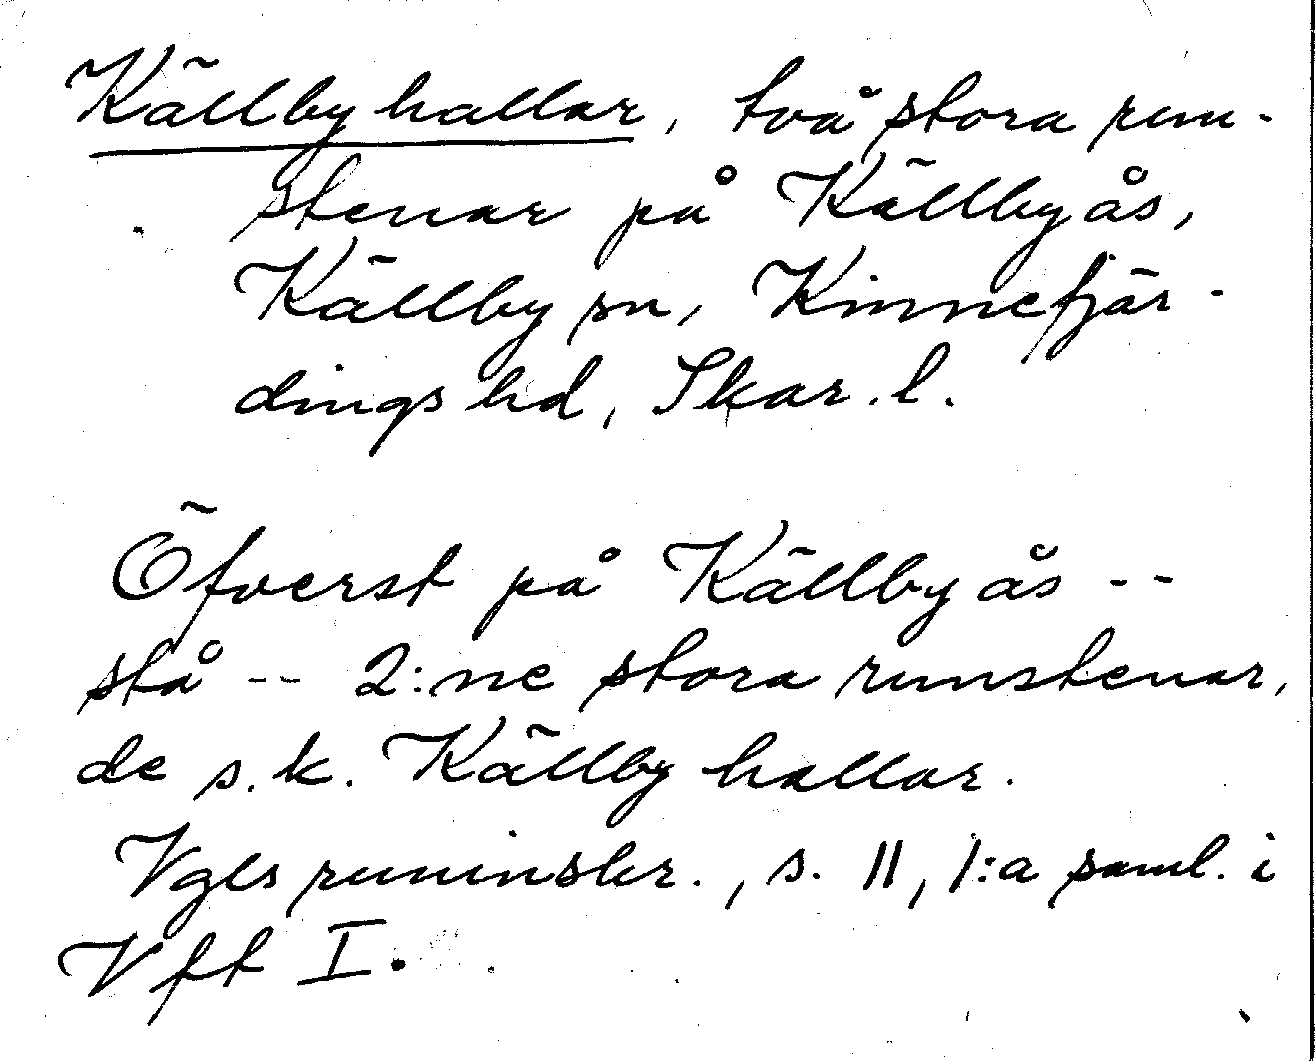 Källby hallar, två stora run-
stenar på Källby ås,
Källby sn, Kinnefjär-
dings hd, Skar. l.
Öfverst på Källby ås --
stå -- 2:ne stora runstenar,
de s.k. Källby hallar.
Vgls runinskr., s. 11, 1:a saml. i
Vft I.